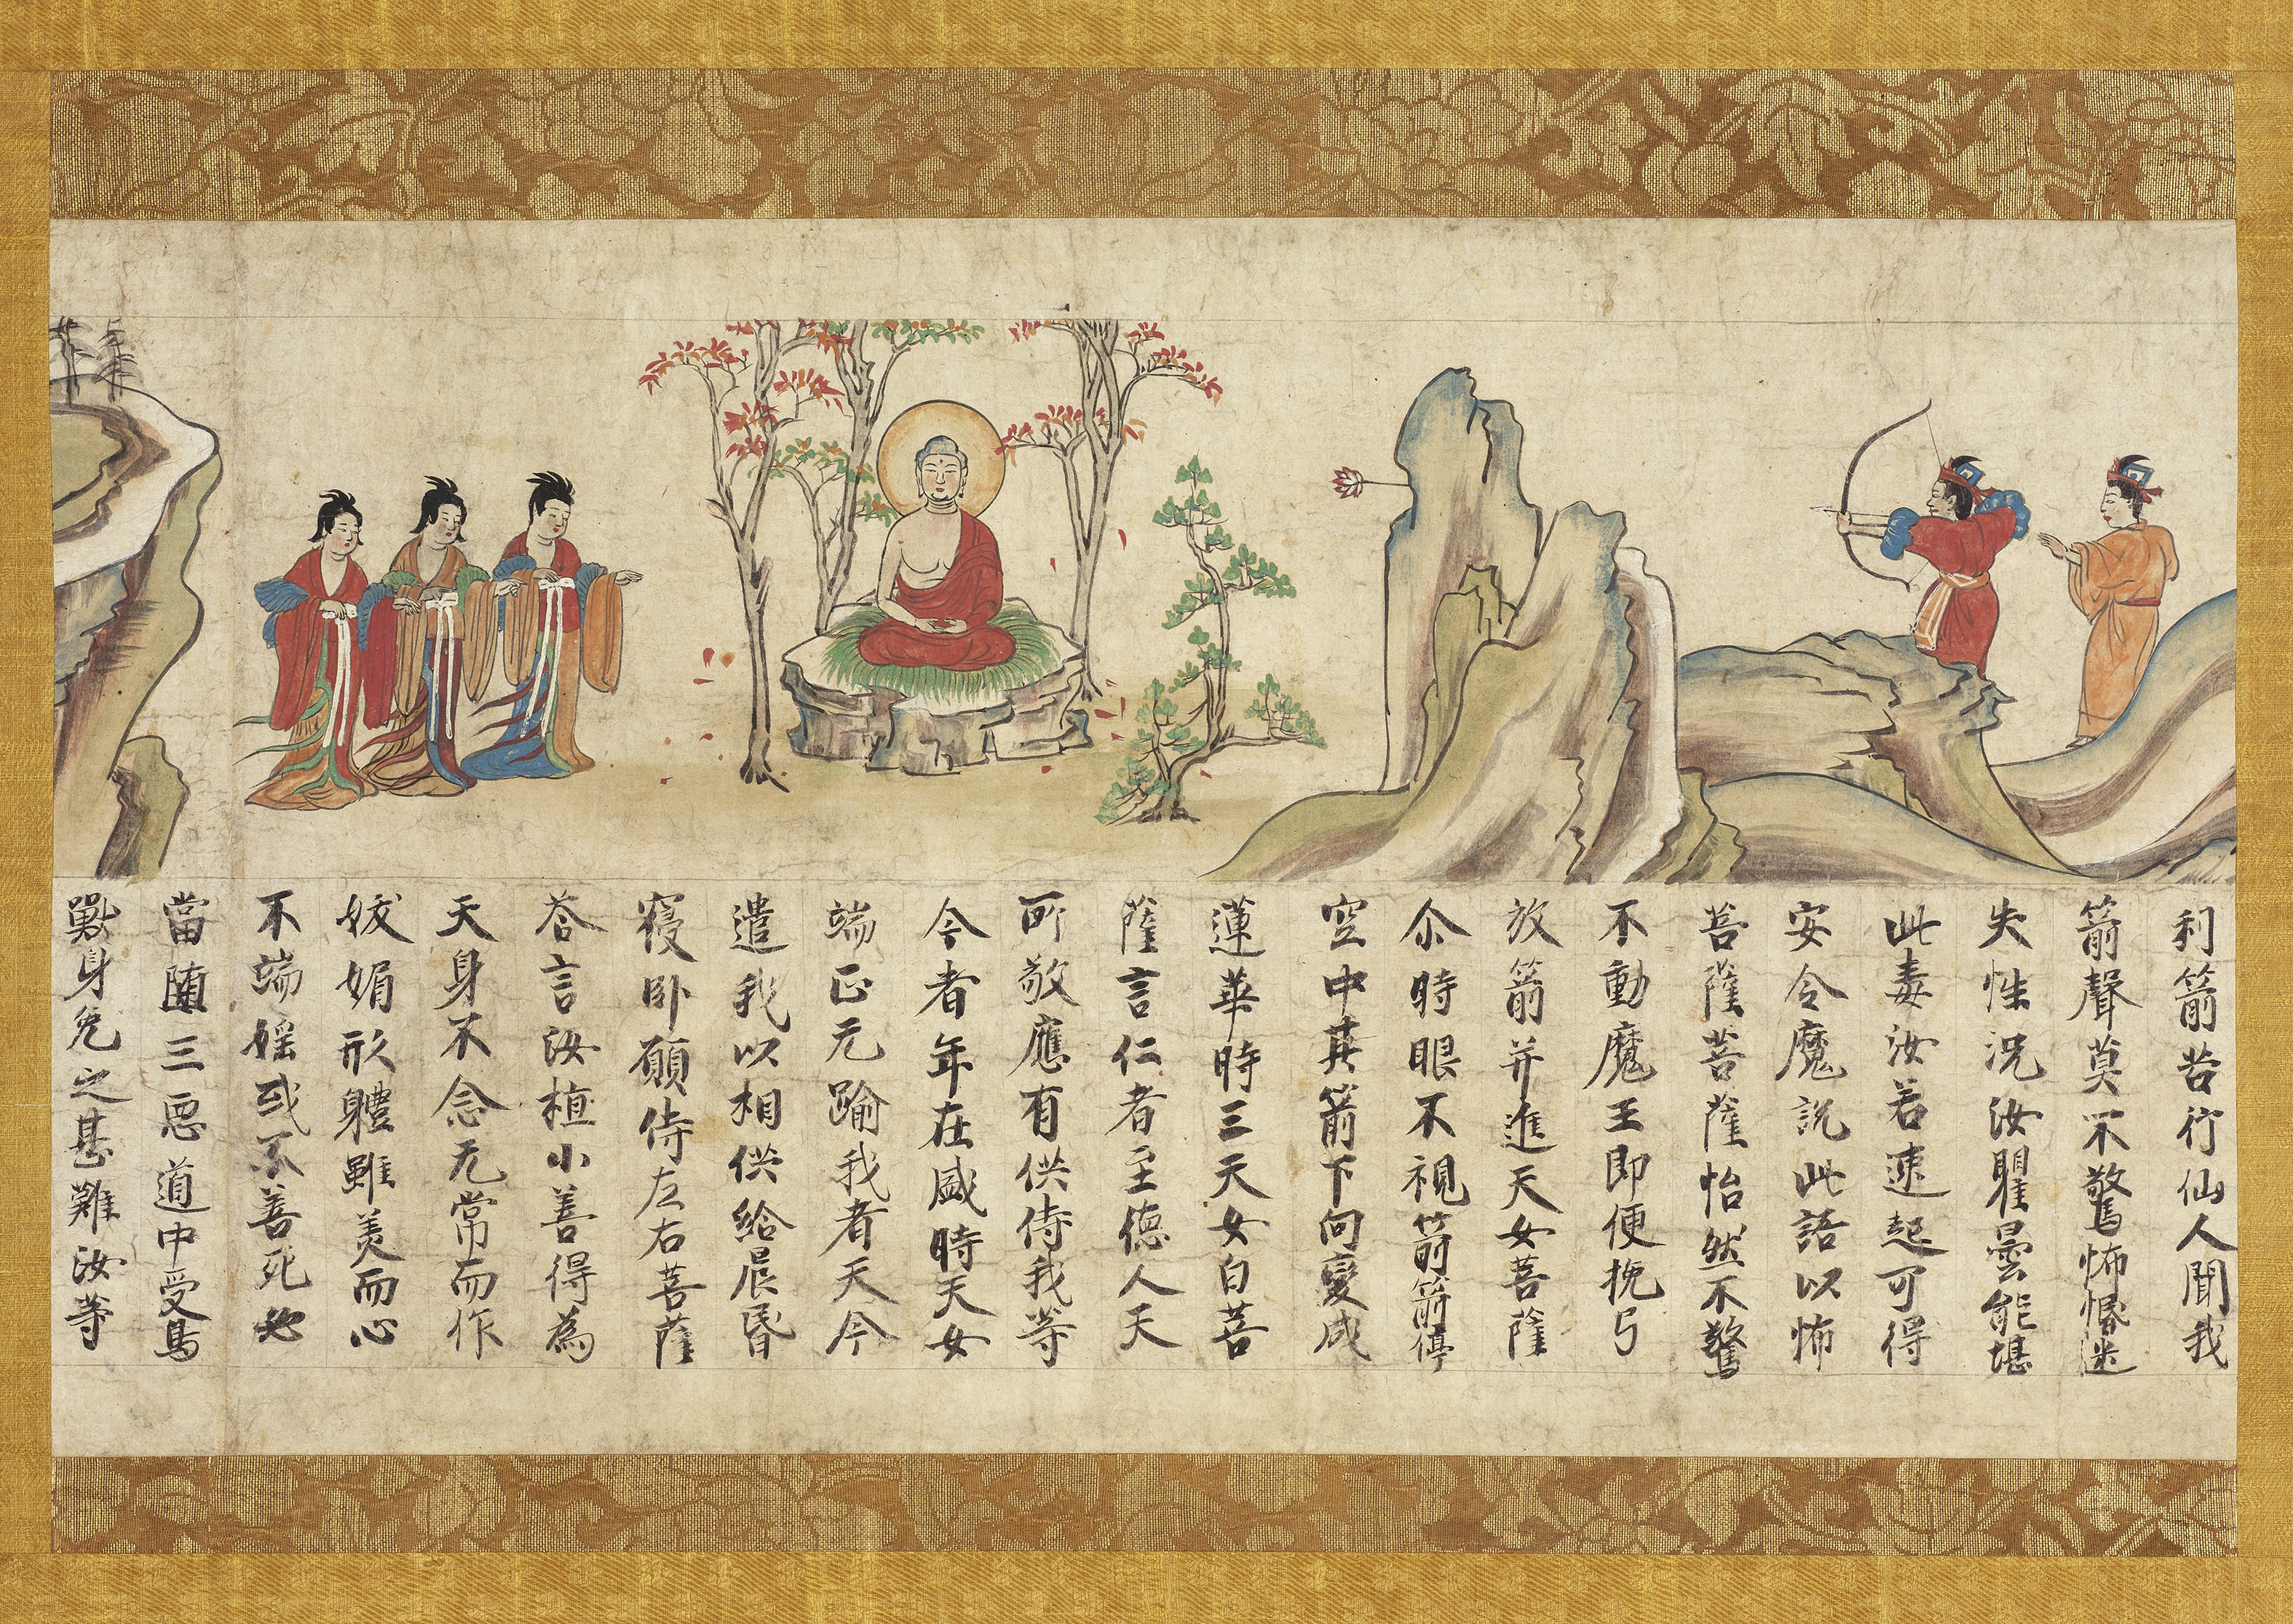 利箭苦行仙人聞我
箭聲莫不驚怖惛迷
失性況汝瞿曇能堪
此毒汝若速起可得
安令魔説此語以怖
菩薩菩薩怡然不驚
不動魔王即便挽弓
放箭并進天女菩薩
尒時眼不視箭箭停
空中其箭下向變成
蓮華時三天女白菩
薩言仁者至徳人天
所敬應有供侍我等
今者年在盛時天女
端正无踰我者天今
遣我以相供給晨昏
寝卧願侍左右菩薩
荅言汝植小善得為
天身不念无常而作
妭媚形體雖美而心
不端婬或不善死必
當随三悪道中受鳥
獸身免之甚難汝等